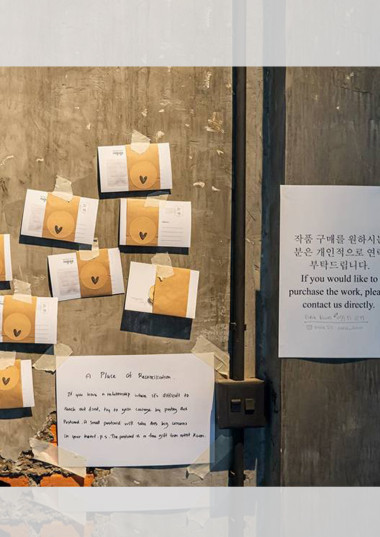 A Place of Reconciliation
If you have a relationship where it's difficult to
reach out first, try to your courage by posting this
Postcard. A small postcard will take this big concerns
in your heart. p.s. The postcard is a free gift from
작품 구매를 원하시는
분은 개인적으로 연락
부탁드립니다.
If you would like to
purchase the work, please
contact us directly.